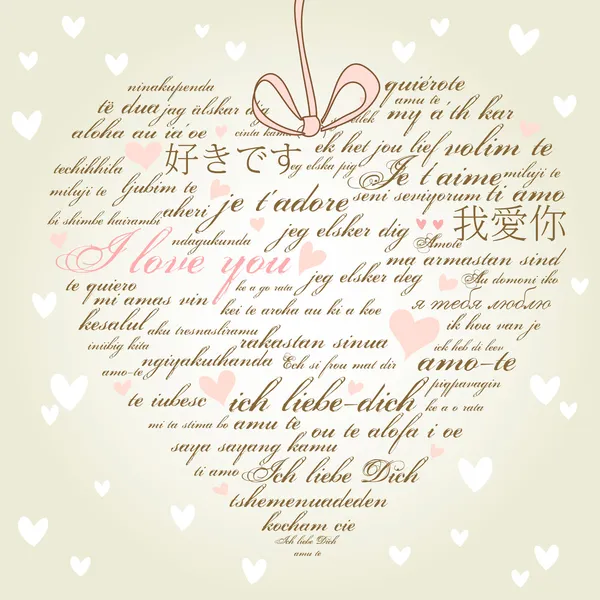 ninakupenda quiérote
të dua jag älskar dig amu te
aloha au ia'oe cinta kamu my a'th kar
ek het jou lief volim te
techihhila 好きです jeg elska pig Je t'aime miluji te
miluji te ljubim te seni seviyorum ti amo
bi shimbe hairambi aheri je t'adore 我愛你
ndagukunda jeg elsker dig Amote
I love you ma armastan sind
te quiero ke a go rata jeg elsker deg Au domoni iko
mi amas vin kei te aroha au ki a koe я тебя люблю
kesalul aku tresnasliramu ik hou van je
iniibig kita rakastan sinua ick heb di leev
ngiyakuthanda Ech si frou mat dir amo-te
pigpavagin
te iubesc ich liebe-dich ke a o rata
mi ta stima bo amu te ou te alofa i oe
saya sayang kamu
ti amo Ich liebe Dich
tshemenuadeden
kocham cie
Ich liebe Dich
amu te